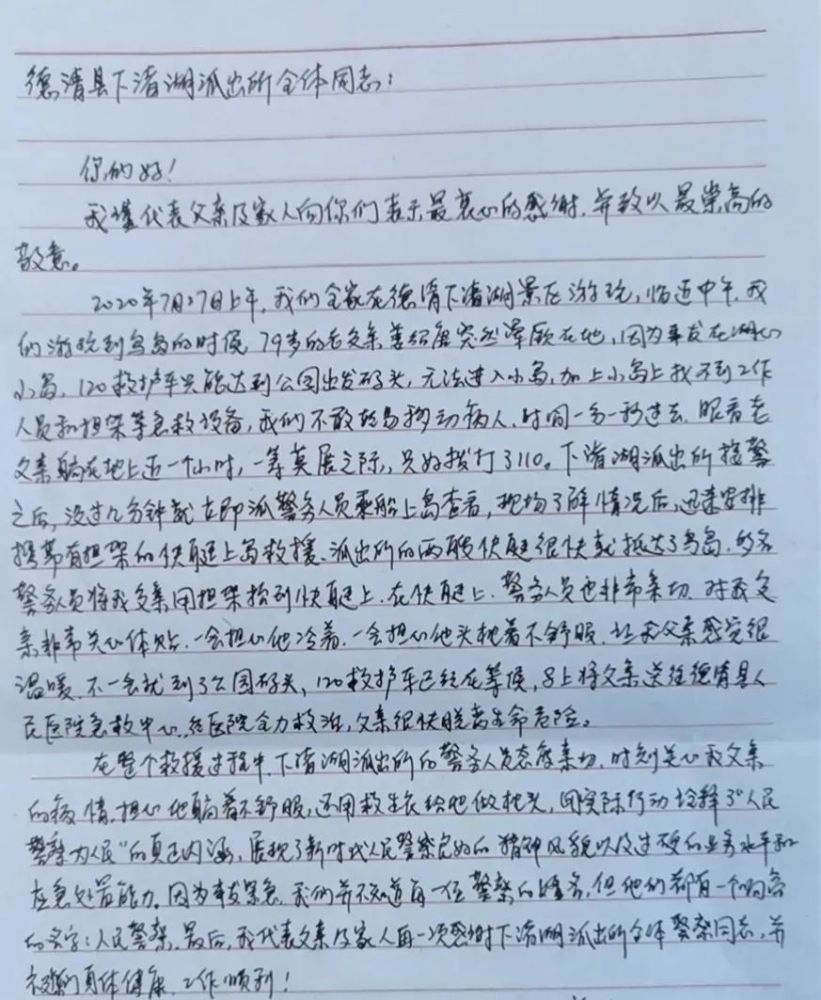 德清县下渚湖派出所全体同志：
你们好！
我谨代表父亲及家人向你们表示最衷心的感谢，并致以最崇高的
敬意。
2020年7月27日上午，我们全家在德清下渚湖景区游玩，临近中午，我
们游玩到鸟岛的时候，79岁的老父亲突然晕厥在地，因为事发在湖心
小岛，120救护车只能达到公园出发码头，无法进入小岛，加上小岛上找不到工作
人员和担架等急救设备，我们不敢轻易移动病人，时间一分一秒过去，眼看老
父亲躺在地上近一个小时，一筹莫展之际，只好拨打了110。下渚湖派出所接警
之后，没过几分钟就立即派警务人员乘船上岛查看，现场了解情况后，迅速安排
携带有担架的快艇上岛救援，派出所的两艘快艇很快就抵达了鸟岛，多名
警务人员将我父亲用担架抬到快艇上，在快艇上，警务人员也非常亲切，对我父
亲非常关心体贴，一会担心他冷着，一会担心他头枕着不舒服，让我父亲感觉很
温暖，不一会就到了公园码头，120救护车已经在等候，马上将父亲送往德清县人
民医院急救中心，经医院全力救治，父亲很快脱离生命危险。
在整个救援过程中，下渚湖派出所的警务人员态度亲切，时刻关心我父亲
的病情，担心他躺着不舒服，还用救生衣给他做枕头，用实际行动诠释了“人民
警察为人民”的真正内涵，展现了新时代人民警察良好的精神风貌以及过硬的业务水平和
应急处置能力。因为事发紧急，我们并不知道每一位警察的姓名，但他们都有一个响亮
的名字：人民警察。最后，我代表父亲及家人再一次感谢下渚湖派出所全体警察同志，并
祝你们身体健康、工作顺利！